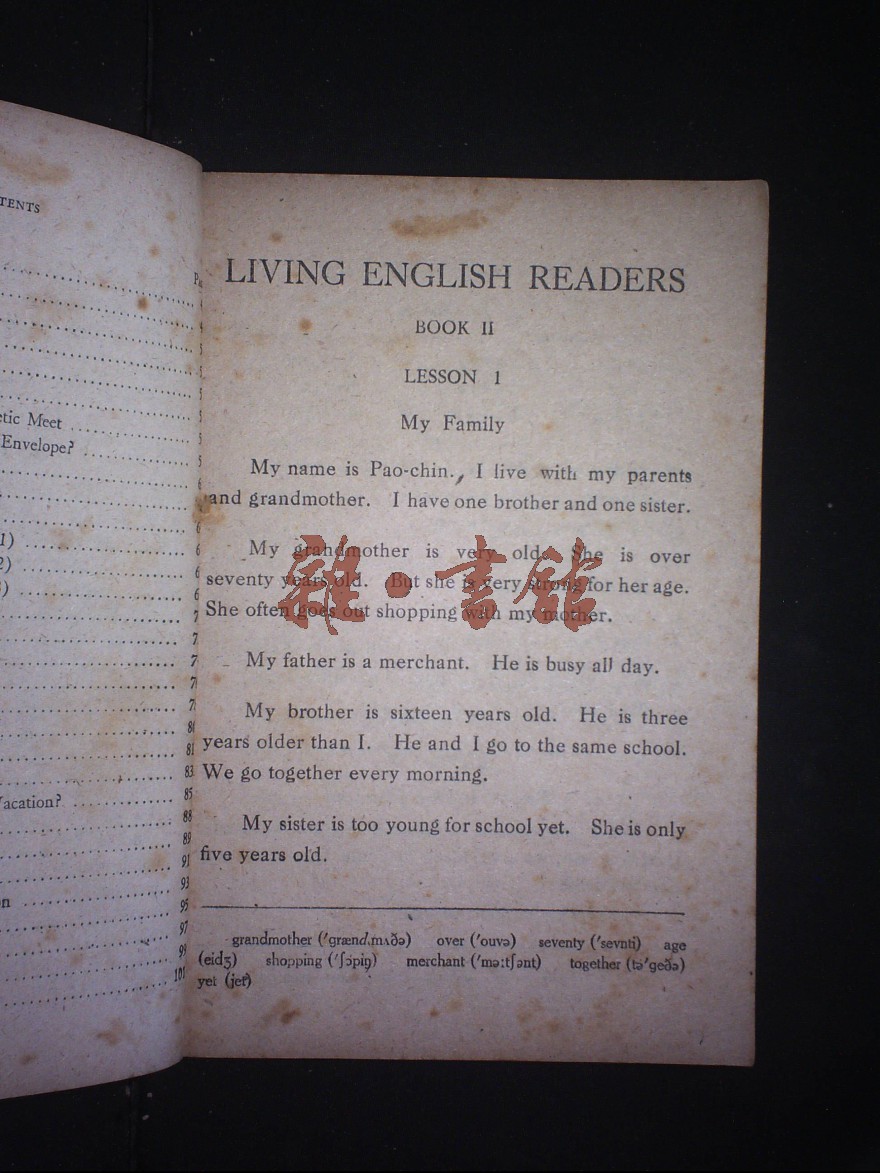 TENTS
etic Meet
Envelope?
1)
2)
Vacation?
80
81
83
85
88
89
91
93
95
97
99
101
LIVING ENGLISH READERS
BOOK II
LESSON 1
My Family
My name is Pao-chin. I live with my parents
and grandmother. I have one brother and one sister.
My grandmother is very old. She is over
seventy years old. But she is very strong for her age.
She often goes out shopping with my mother.
雜·書館
My father is a merchant. He is busy all day.
My brother is sixteen years old. He is three
years older than I. He and I go to the same school.
We go together every morning.
My sister is too young for school yet. She is only
five years old.
grandmother ('grænd,mʌðə) over ('ouvə) seventy ('sevnti) age
(eidʒ) shopping ('ʃɔpiŋ) merchant ('mə:tʃənt) together (tə'geðə)
yet (jet)